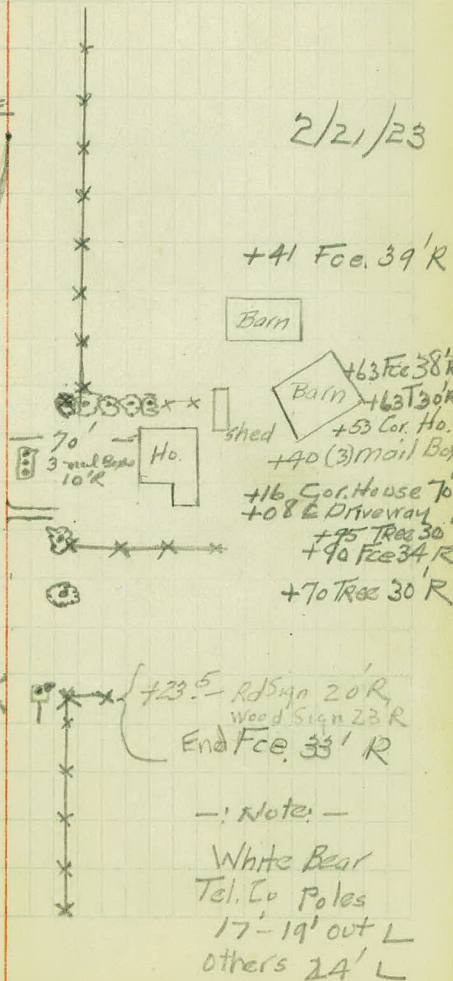 2/21/23
+41 Fce. 39'R
Barn
+63 Fce 38'R
Barn
+63 T 30'R
shed
+53 Cor. Ho.
70'
Ho.
3 mail Boxes
10'R
+40 (3) mail Box
+16 Cor. House 70'
+08 ⅊ Driveway
+95 Tree 30'
+90 Fce 34'R
+70 Tree 30'R
+23.5 - Rd Sign 20'R,
Wood Sign 23'R
End Fce. 33' R
-: Note: -
White Bear
Tel. Co Poles
17'-19' out L
others 24' L